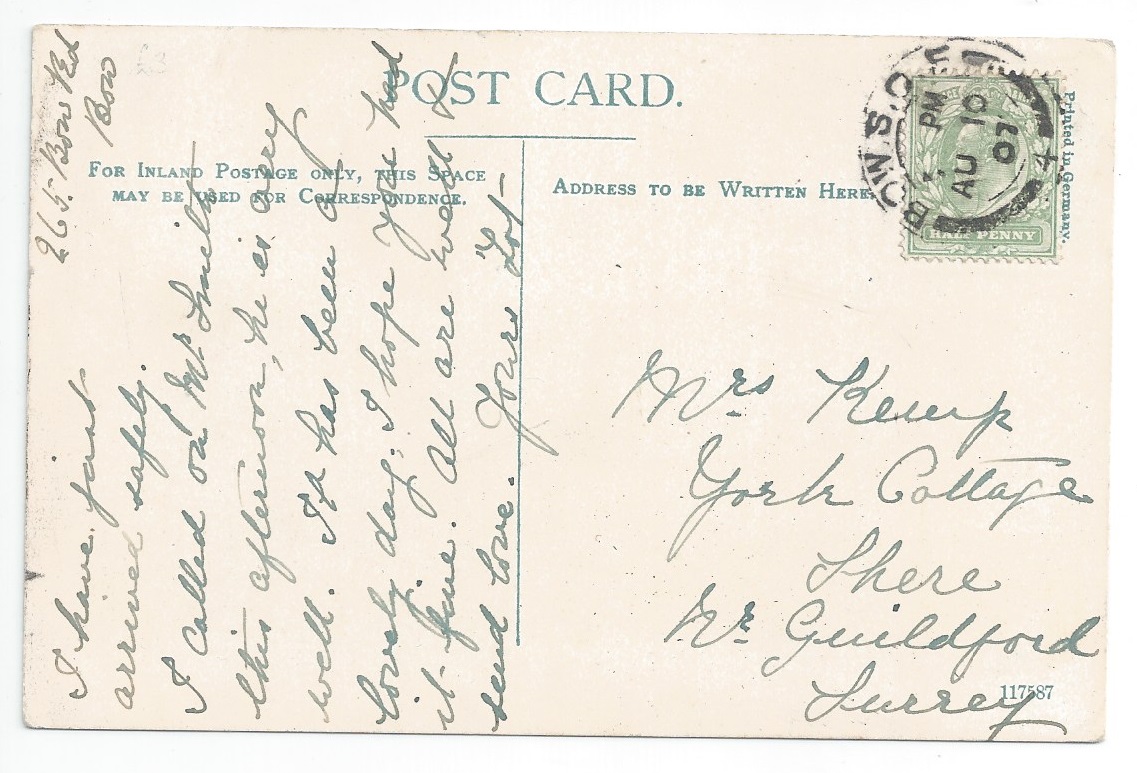 POST CARD.
FOR INLAND POSTAGE ONLY, THIS SPACE
MAY BE USED FOR CORRESPONDENCE.
ADDRESS TO BE WRITTEN HERE.
Printed in Germany.
BOW. S.O.
PM
AU 10
07
4
HALF PENNY
265 Bow Rd
Bow
I have just
arrived safely.
I called on Mr Smith
this afternoon, he is very
well. It has been a
lovely day. I hope you had
it fine. All are well &
send love. Yours
Mrs Kemp
York Cottage
Shere
Nr Guildford
Surrey
117587